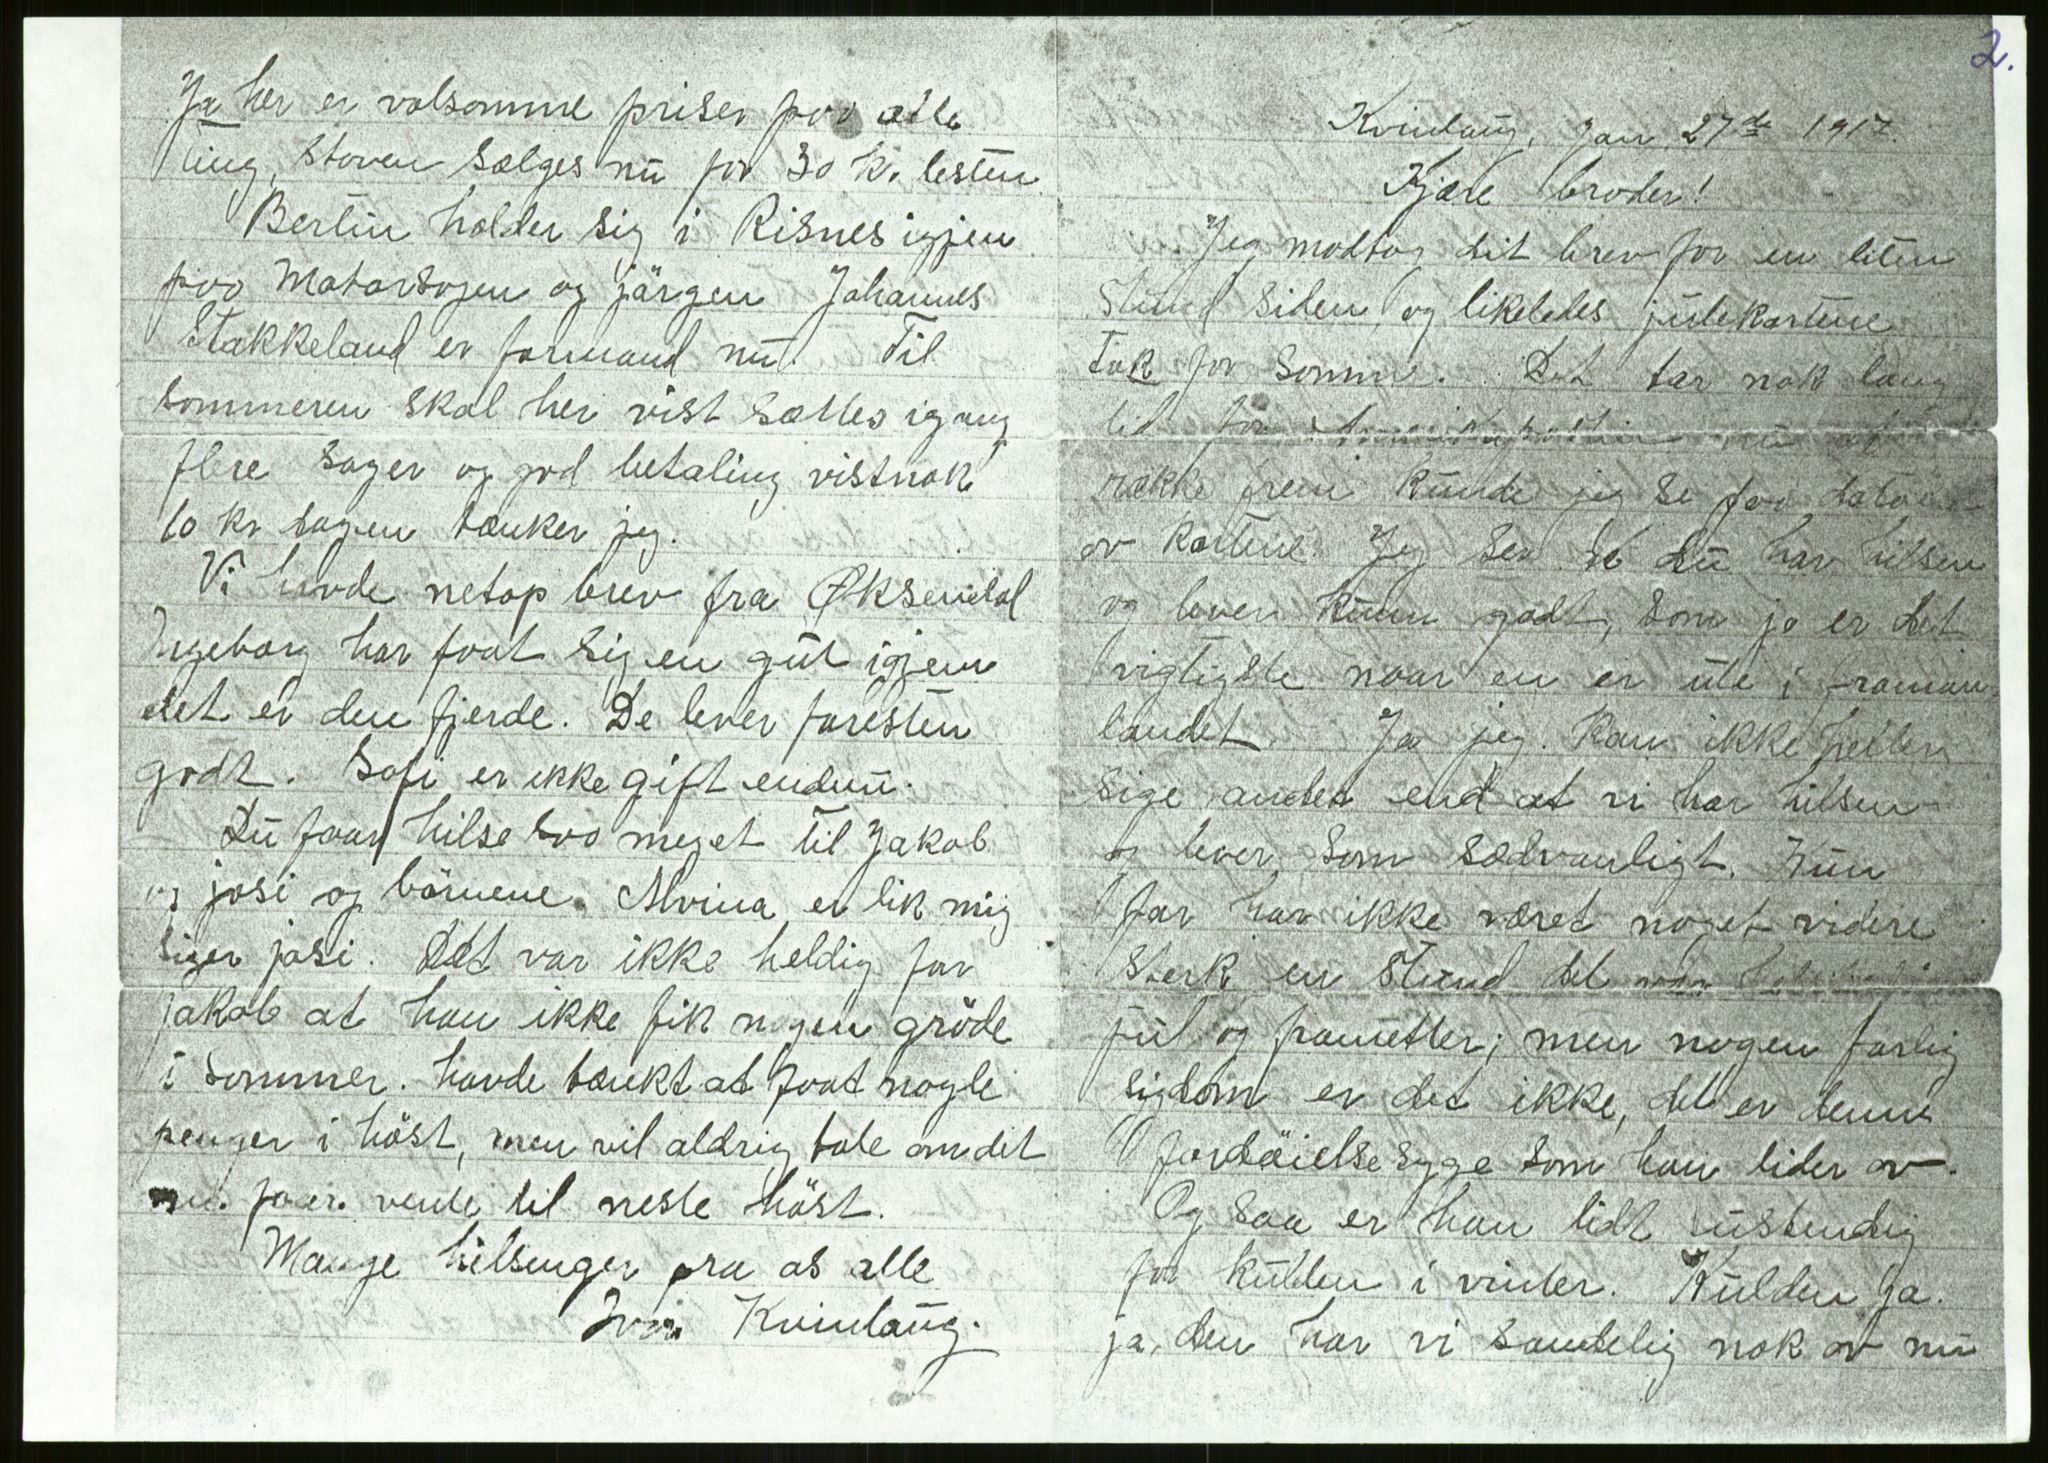 2.
Kvinlaug, Jan. 27de 1917.
Kjære broder!
Jeg modtog dit brev for en liten
stund siden, og likeledes julekortene
Tak for somme. Det tar nok lang
tid for Amerikaposten nu at
række frem kunde jeg se paa
av kortene. Jeg ser at du har hilsen
og lever kuun godt, som jo er det
vigtigste naar en er ute i
landet. Ja jeg kan ikke heller
sige andet end at vi har hilsen
og lever som sædvanligt. Kun
far har ikke været noget videre
sterk en stund, det var
jul og frametter; men nogen farlig
sigdom er det ikke, det er denne
fordöielsesyge som han lider av.
Og saa er han lidt ustendig
for kulden i vinter. Kulden ja.
ja, den har vi sandelig nok av nu
Ja her er volsomme priser paa alle
ting, stoven sælges nu for 30 kr. lesten
Bertin holder sig i Risnes igjen
paa Motorsogen og järgen Johannes
Stakkeland er formand nu. Til
sommeren skal her vist sættes igang
flere sager og god betaling vistnok
10 kr dagen tænker jeg.
Vi havde netop brev fra Øksendal
Ingeborg har faat sig en gut igjen
det er den fjerde. De lever foresten
godt. Sofi er ikke gift endnu.
Du faar hilse saa meget til Jakob
og josi og börnene. Alvina er lik mig
siger josi. Det var ikke heldig for
jakob at han ikke fik nogen gröde
i sommer. havde tænkt at faat nogle
penger i höst, men vil aldrig tale om det
nu. faar vente til neste höst.
Mange hilsenger fra os alle
Ivar Kvinlaug.